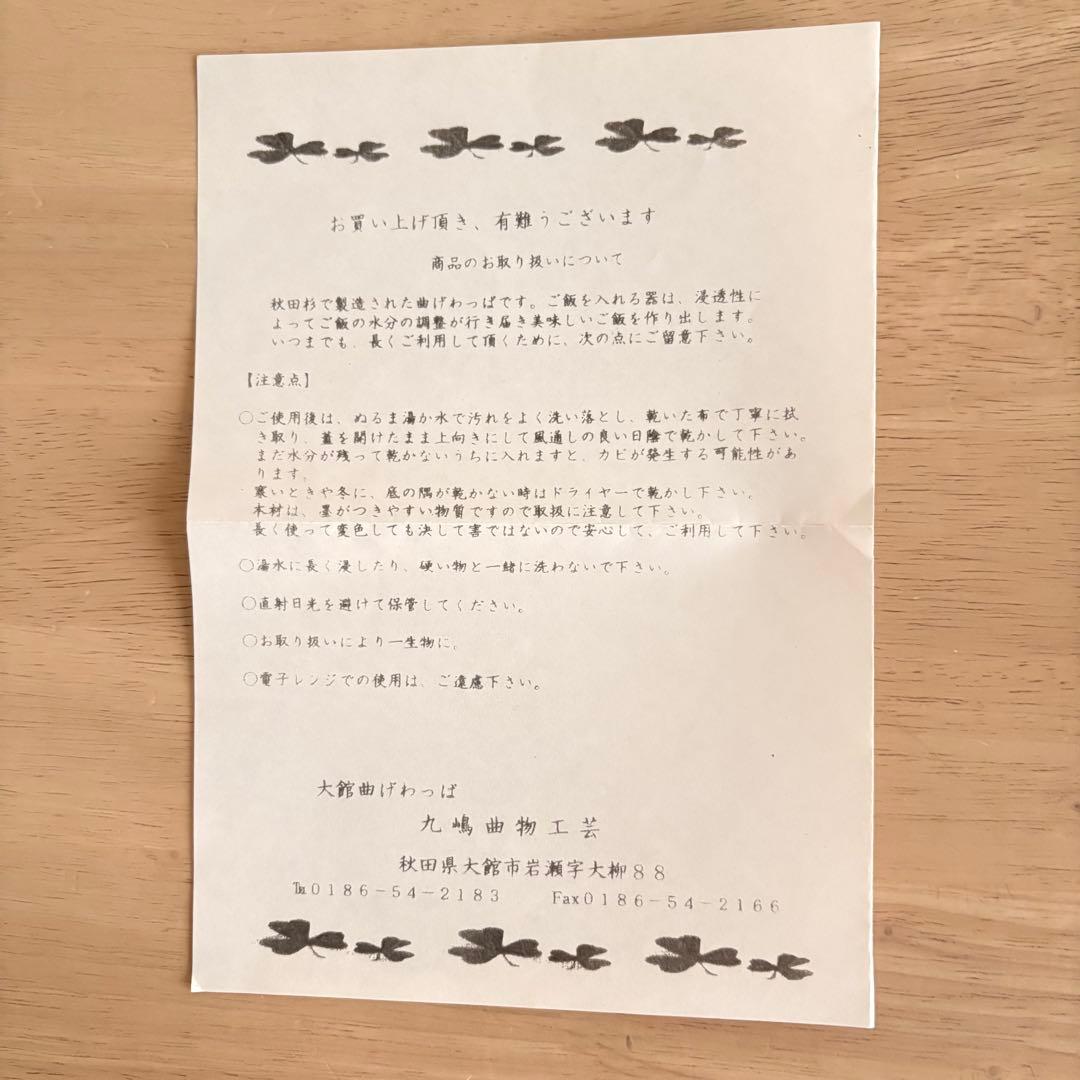 お買い上げ頂き、有難うございます
商品のお取り扱いについて
秋田杉で製造された曲げわっぱです。ご飯を入れる器は、浸透性に
よってご飯の水分の調整が行き届き美味しいご飯を作り出します。
いつまでも、長くご利用して頂くために、次の点にご留意下さい。
【注意点】
○ご使用後は、ぬるま湯か水で汚れをよく洗い落とし、乾いた布で丁寧に拭
き取り、蓋を開けたまま上向きにして風通しの良い日陰で乾かして下さい。
まだ水分が残って乾かないうちに入れますと、カビが発生する可能性があ
ります。
寒いときや冬に、底の隅が乾かない時はドライヤーで乾かし下さい。
木材は、墨がつきやすい物質ですので取扱に注意して下さい。
長く使って変色しても決して害ではないので安心して、ご利用して下さい。
○湯水に長く浸したり、硬い物と一緒に洗わないで下さい。
○直射日光を避けて保管してください。
○お取り扱いにより一生物に。
○電子レンジでの使用は、ご遠慮下さい。
大館曲げわっぱ
九嶋曲物工芸
秋田県大館市岩瀬字大柳88
℡0186-54-2183 Fax0186-54-2166